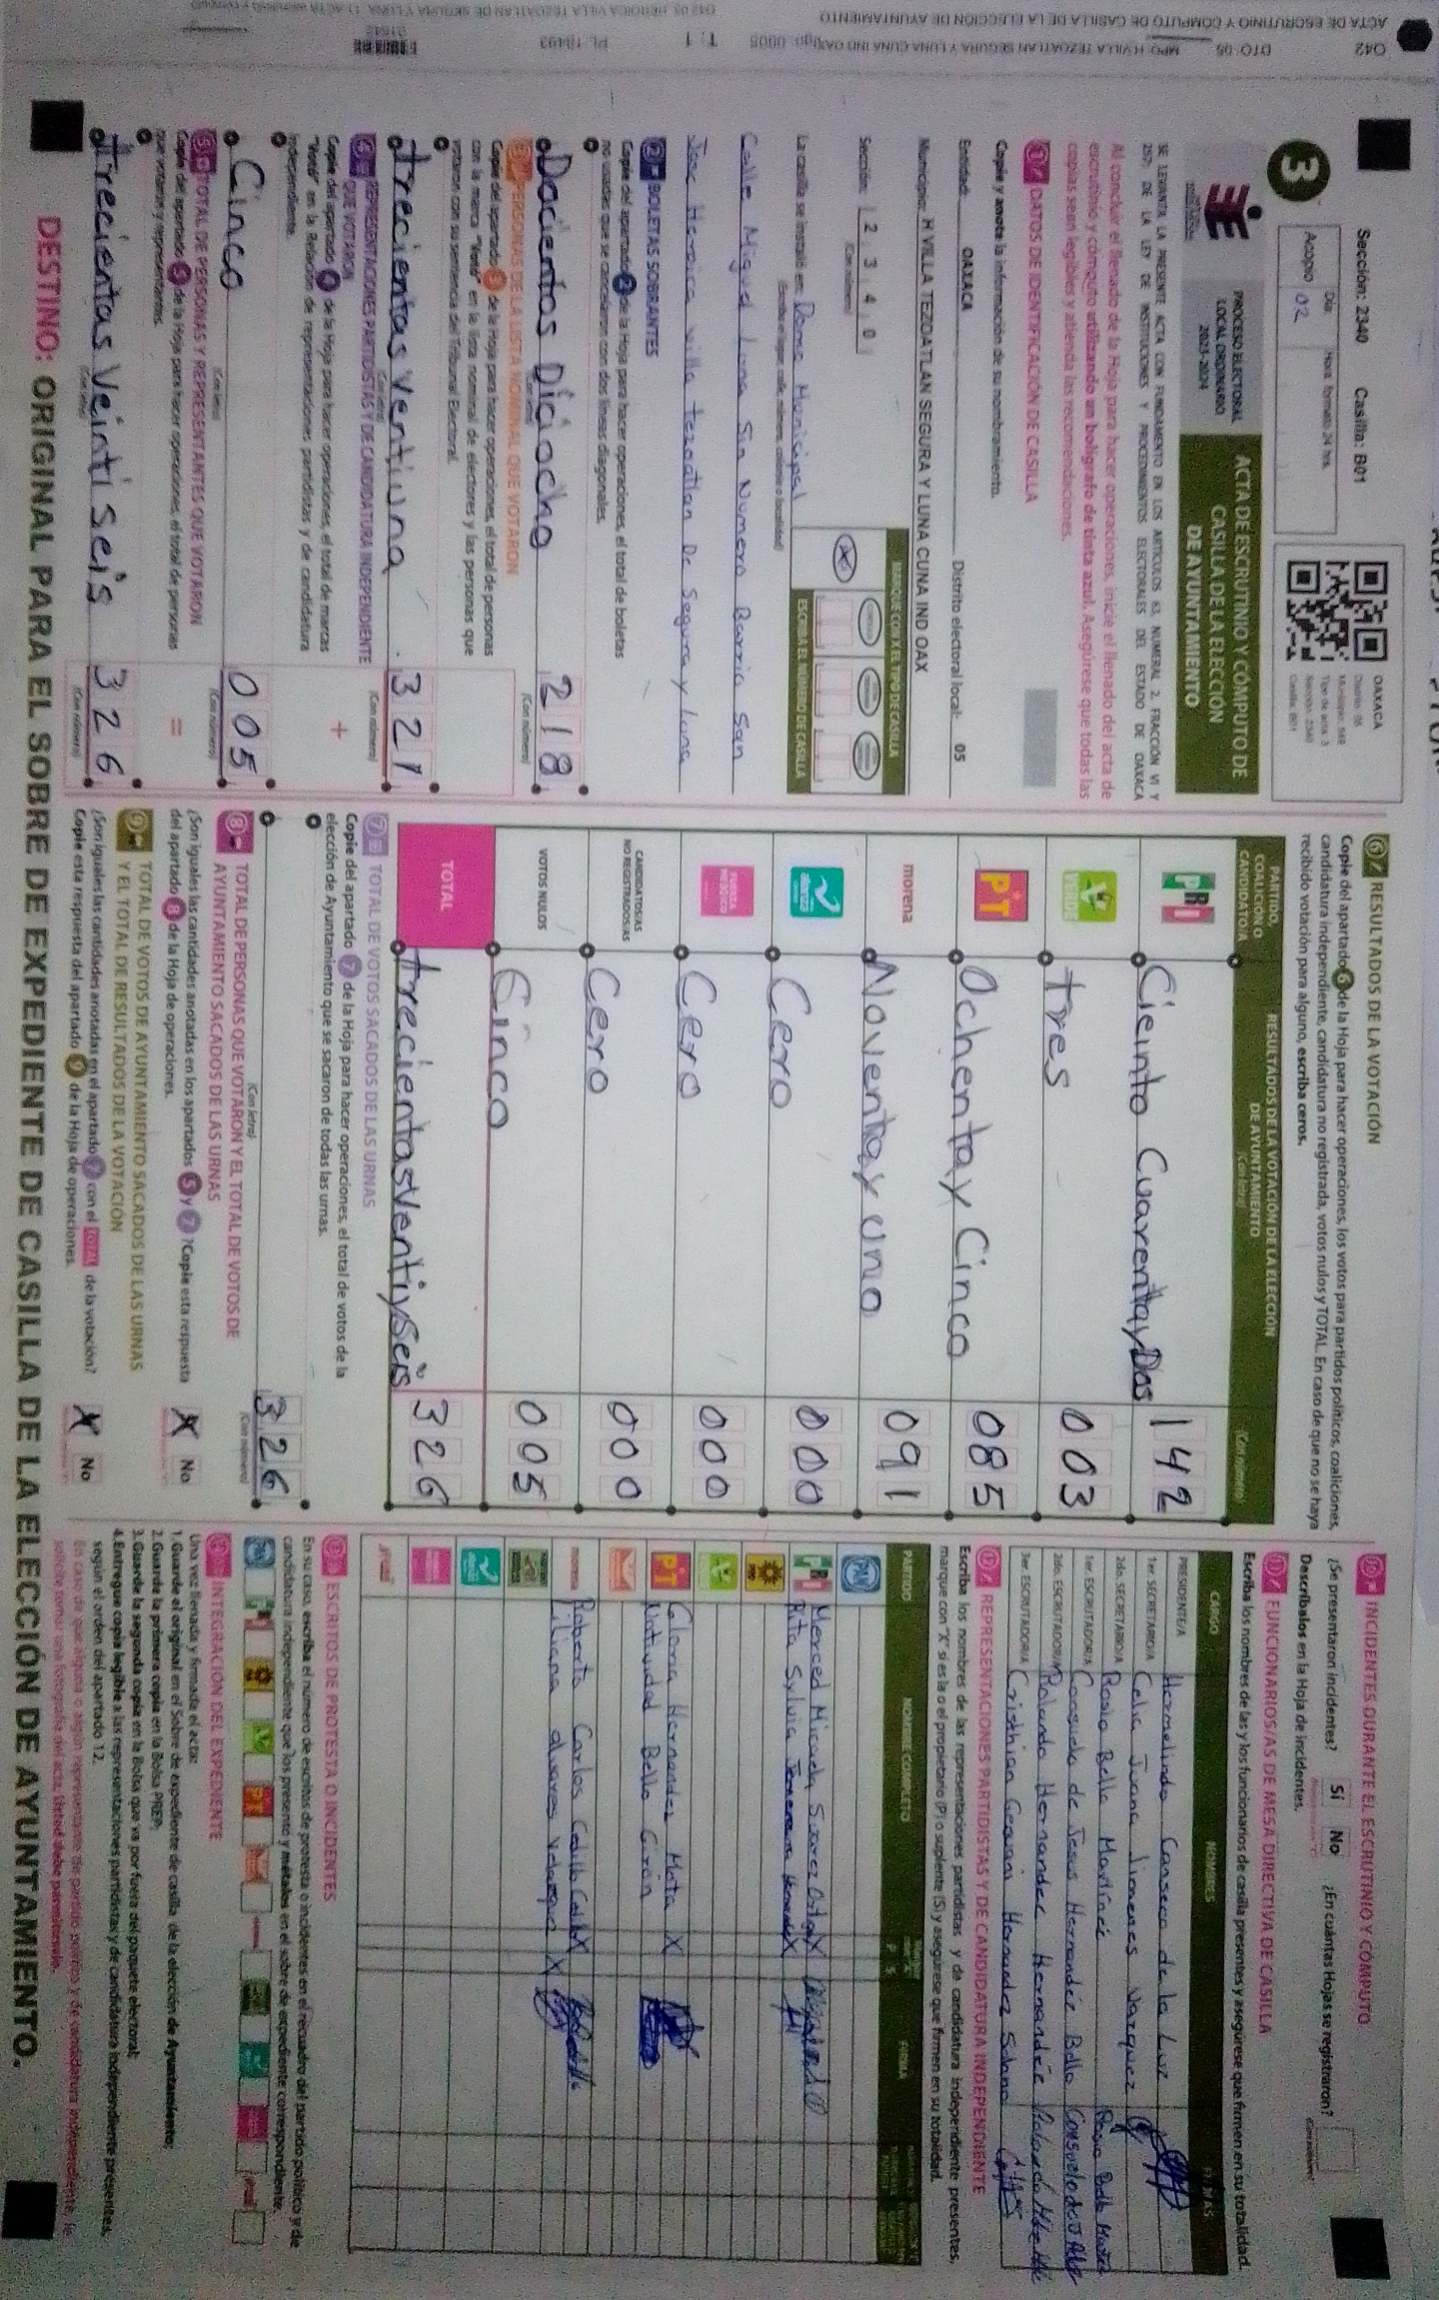 Sección: 2340 Casilla: B01
Día Hora formato 24 hrs.
Acopio 02
OAXACA
3
PROCESO ELECTORAL
LOCAL ORDINARIO
2023-2024
ACTA DE ESCRUTINIO Y CÓMPUTO DE
CASILLA DE LA ELECCIÓN
DE AYUNTAMIENTO
SE LEVANTA LA PRESENTE ACTA CON FUNDAMENTO EN LOS ARTÍCULOS 63, NUMERAL 2, FRACCIÓN VI Y
257; DE LA LEY DE INSTITUCIONES Y PROCEDIMIENTOS ELECTORALES DEL ESTADO DE OAXACA
Al concluir el llenado de la Hoja para hacer operaciones, inicie el llenado del acta de
escrutinio y cómputo utilizando un bolígrafo de tinta azul. Asegúrese que todas las
copias sean legibles y atienda las recomendaciones.
1 DATOS DE IDENTIFICACIÓN DE CASILLA
Copie y anote la información de su nombramiento.
Entidad: OAXACA Distrito electoral local: 05
Municipio: H VILLA TEZOATLAN SEGURA Y LUNA CUNA IND OAX
Sección: 2 3 4 0
(Con número)
MARQUE CON X EL TIPO DE CASILLA
ESCRIBA EL NÚMERO DE CASILLA
La casilla se instaló en: Domo Municipal
(Escriba el lugar, calle, número, colonia o localidad)
Calle Miguel Luna Sin Numero Barrio San
Jose Heroica villa tezoatlan De Segura y Luna
2 BOLETAS SOBRANTES
Copie del apartado 2 de la Hoja para hacer operaciones, el total de boletas
no usadas que se cancelaron con dos líneas diagonales.
Docientos Diciocho 218
(Con letra) (Con número)
3 PERSONAS DE LA LISTA NOMINAL QUE VOTARON
Copie del apartado 3 de la Hoja para hacer operaciones, el total de personas
con la marca "Votó" en la lista nominal de electores y las personas que
votaron con su sentencia del Tribunal Electoral.
trecientas ventiuna 321
(Con letra) (Con número)
4 REPRESENTACIONES PARTIDISTAS Y DE CANDIDATURA INDEPENDIENTE
QUE VOTARON
Copie del apartado 4 de la Hoja para hacer operaciones, el total de marcas
"Votó" en la Relación de representaciones partidistas y de candidatura
independiente.
+
Cinco 005
(Con letra) (Con número)
5 TOTAL DE PERSONAS Y REPRESENTANTES QUE VOTARON
Copie del apartado 5 de la Hoja para hacer operaciones, el total de personas
que votaron y representantes.
=
trecientas Veinti seis 326
(Con letra) (Con número)
6 RESULTADOS DE LA VOTACIÓN
Copie del apartado 6 de la Hoja para hacer operaciones, los votos para partidos políticos, coaliciones,
candidatura independiente, candidatura no registrada, votos nulos y TOTAL. En caso de que no se haya
recibido votación para alguno, escriba ceros.
PARTIDO,
COALICIÓN O
CANDIDATO/A
RESULTADOS DE LA VOTACIÓN DE LA ELECCIÓN
DE AYUNTAMIENTO
(Con letra) (Con número)
PRI Cieinto Cuarentay Dos 142
VERDE tres 003
PT Ochentay Cinco 085
morena Noventay uno 091
alianza Cero 000
FUERZA MÉXICO Cero 000
CANDIDATOS/AS
NO REGISTRADOS/AS Cero 000
VOTOS NULOS Cinco 005
TOTAL trecientasVentiySeis 326
7 TOTAL DE VOTOS SACADOS DE LAS URNAS
Copie del apartado 7 de la Hoja para hacer operaciones, el total de votos de la
elección de Ayuntamiento que se sacaron de todas las urnas.
326
(Con letra) (Con número)
8 TOTAL DE PERSONAS QUE VOTARON Y EL TOTAL DE VOTOS DE
AYUNTAMIENTO SACADOS DE LAS URNAS
¿Son iguales las cantidades anotadas en los apartados 5 y 7? Copie esta respuesta
del apartado 8 de la Hoja de operaciones.
X No
9 TOTAL DE VOTOS DE AYUNTAMIENTO SACADOS DE LAS URNAS
Y EL TOTAL DE RESULTADOS DE LA VOTACIÓN
¿Son iguales las cantidades anotadas en el apartado 7 con el TOTAL de la votación?
Copie esta respuesta del apartado 9 de la Hoja de operaciones.
X No
10 INCIDENTES DURANTE EL ESCRUTINIO Y CÓMPUTO
¿Se presentaron incidentes? Sí No ¿En cuántas Hojas se registraron?
Descríbalos en la Hoja de incidentes.
11 FUNCIONARIOS/AS DE MESA DIRECTIVA DE CASILLA
Escriba los nombres de las y los funcionarios de casilla presentes y asegúrese que firmen en su totalidad.
CARGO NOMBRES FIRMAS
PRESIDENTE/A Hermelinda Canseco de la Luz
1er. SECRETARIO/A Celia Juana Jimenes Vazquez
2do. SECRETARIO/A Rosio Bello Martinez
1er. ESCRUTADOR/A Consuelo de Jesus Hernandez Bello
2do. ESCRUTADOR/A Rolando Hernandez Hernandez
3er. ESCRUTADOR/A Cristhian Geovani Hernandez Solano
12 REPRESENTACIONES PARTIDISTAS Y DE CANDIDATURA INDEPENDIENTE
Escriba los nombres de las representaciones partidistas y de candidatura independiente presentes,
marque con "X" si es la o el propietario (P) o suplente (S) y asegúrese que firmen en su totalidad.
PARTIDO NOMBRE COMPLETO P S FIRMA
PAN
PRI Merced Micaela Suarez X
Rita Sylvia X
PRD
VERDE
PT Gloria Hernandez Mota X
Natividad Bello Giron
morena Roberto Carlos Cedillo X
Liliana alvares X
13 ESCRITOS DE PROTESTA O INCIDENTES
En su caso, escriba el número de escritos de protesta o incidentes en el recuadro del partido político y de
candidatura independiente que los presentó y métalos en el sobre de expediente correspondiente.
INTEGRACIÓN DEL EXPEDIENTE
Una vez llenada y firmada el acta:
1. Guarde el original en el Sobre de expediente de casilla de la elección de Ayuntamiento;
2. Guarde la primera copia en la Bolsa PREP;
3. Guarde la segunda copia en la Bolsa que va por fuera del paquete electoral;
4. Entregue copia legible a las representaciones partidistas y de candidatura independiente presentes,
según el orden del apartado 12.
En caso de que alguna o algún representante de partido político y de candidatura independiente, le
solicite tomar una fotografía del acta, Usted debe permitírselo.
DESTINO: ORIGINAL PARA EL SOBRE DE EXPEDIENTE DE CASILLA DE LA ELECCIÓN DE AYUNTAMIENTO.